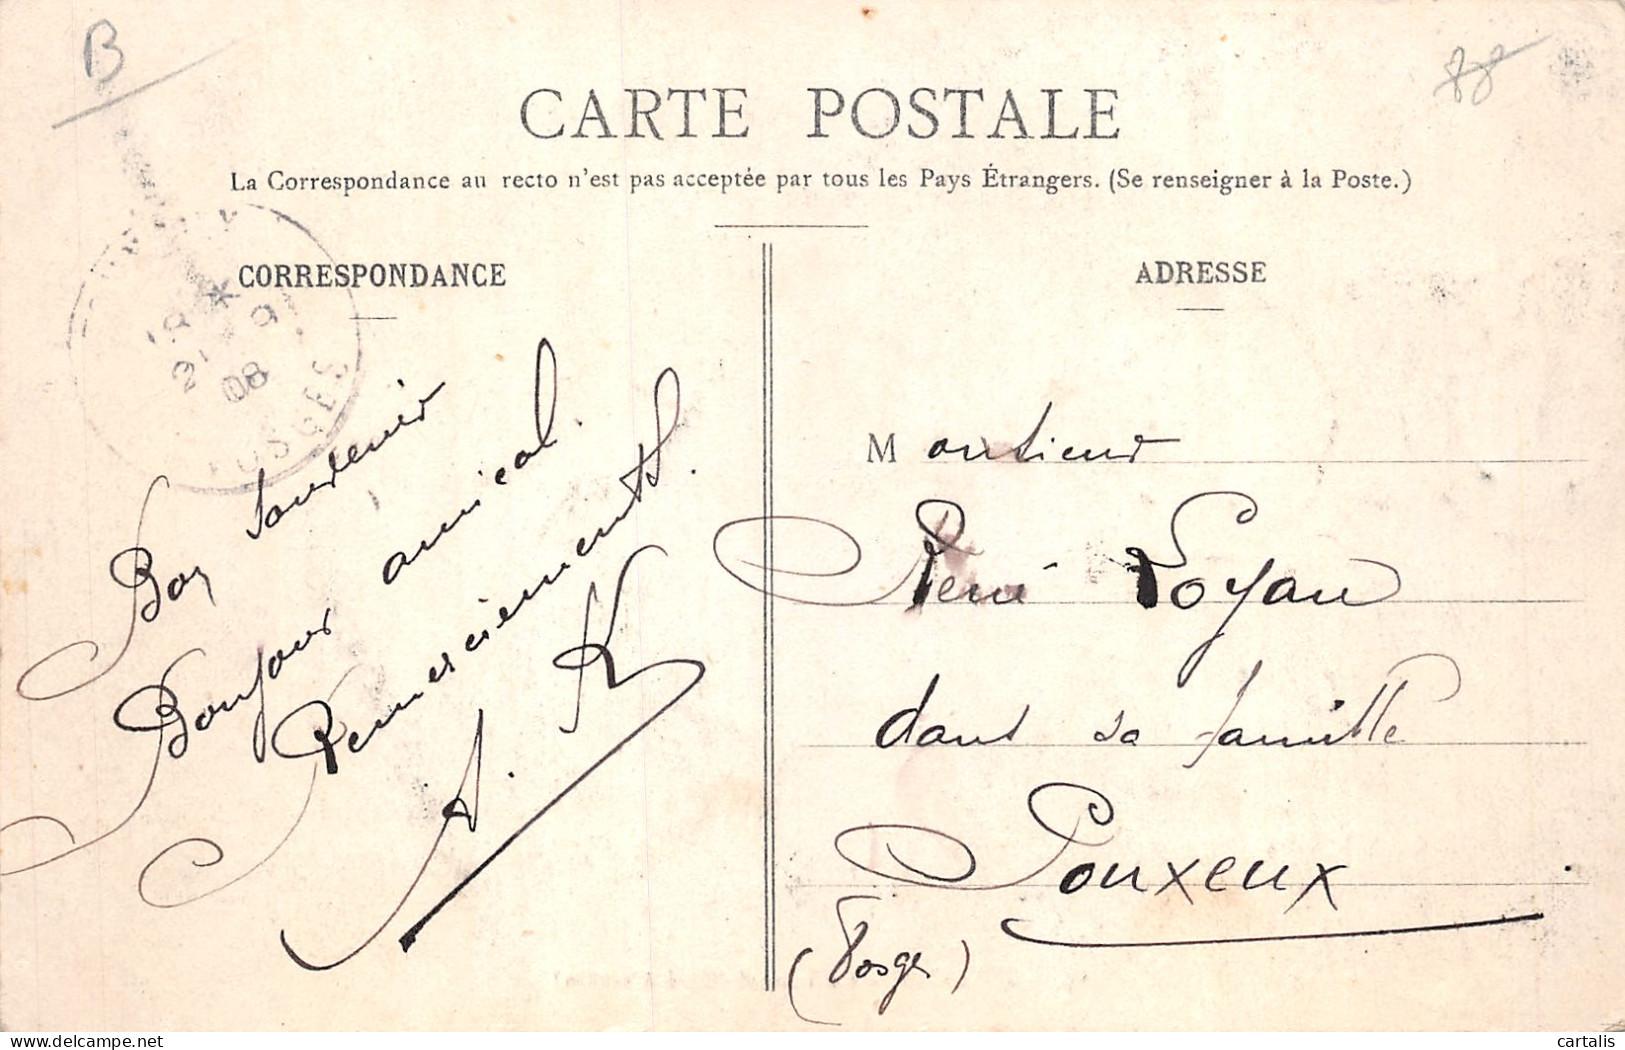 B
88
CARTE POSTALE
La Correspondance au recto n'est pas acceptée par tous les Pays Étrangers. (Se renseigner à la Poste.)
CORRESPONDANCE
ADRESSE
* 
21 9
08
VOSGES
Bon souvenir
Bonjour amical.
Remerciements.
A. K
Monsieur
René Loyau
dans sa famille
Pouxeux.
(Vosges)
delcampe.net
cartalis